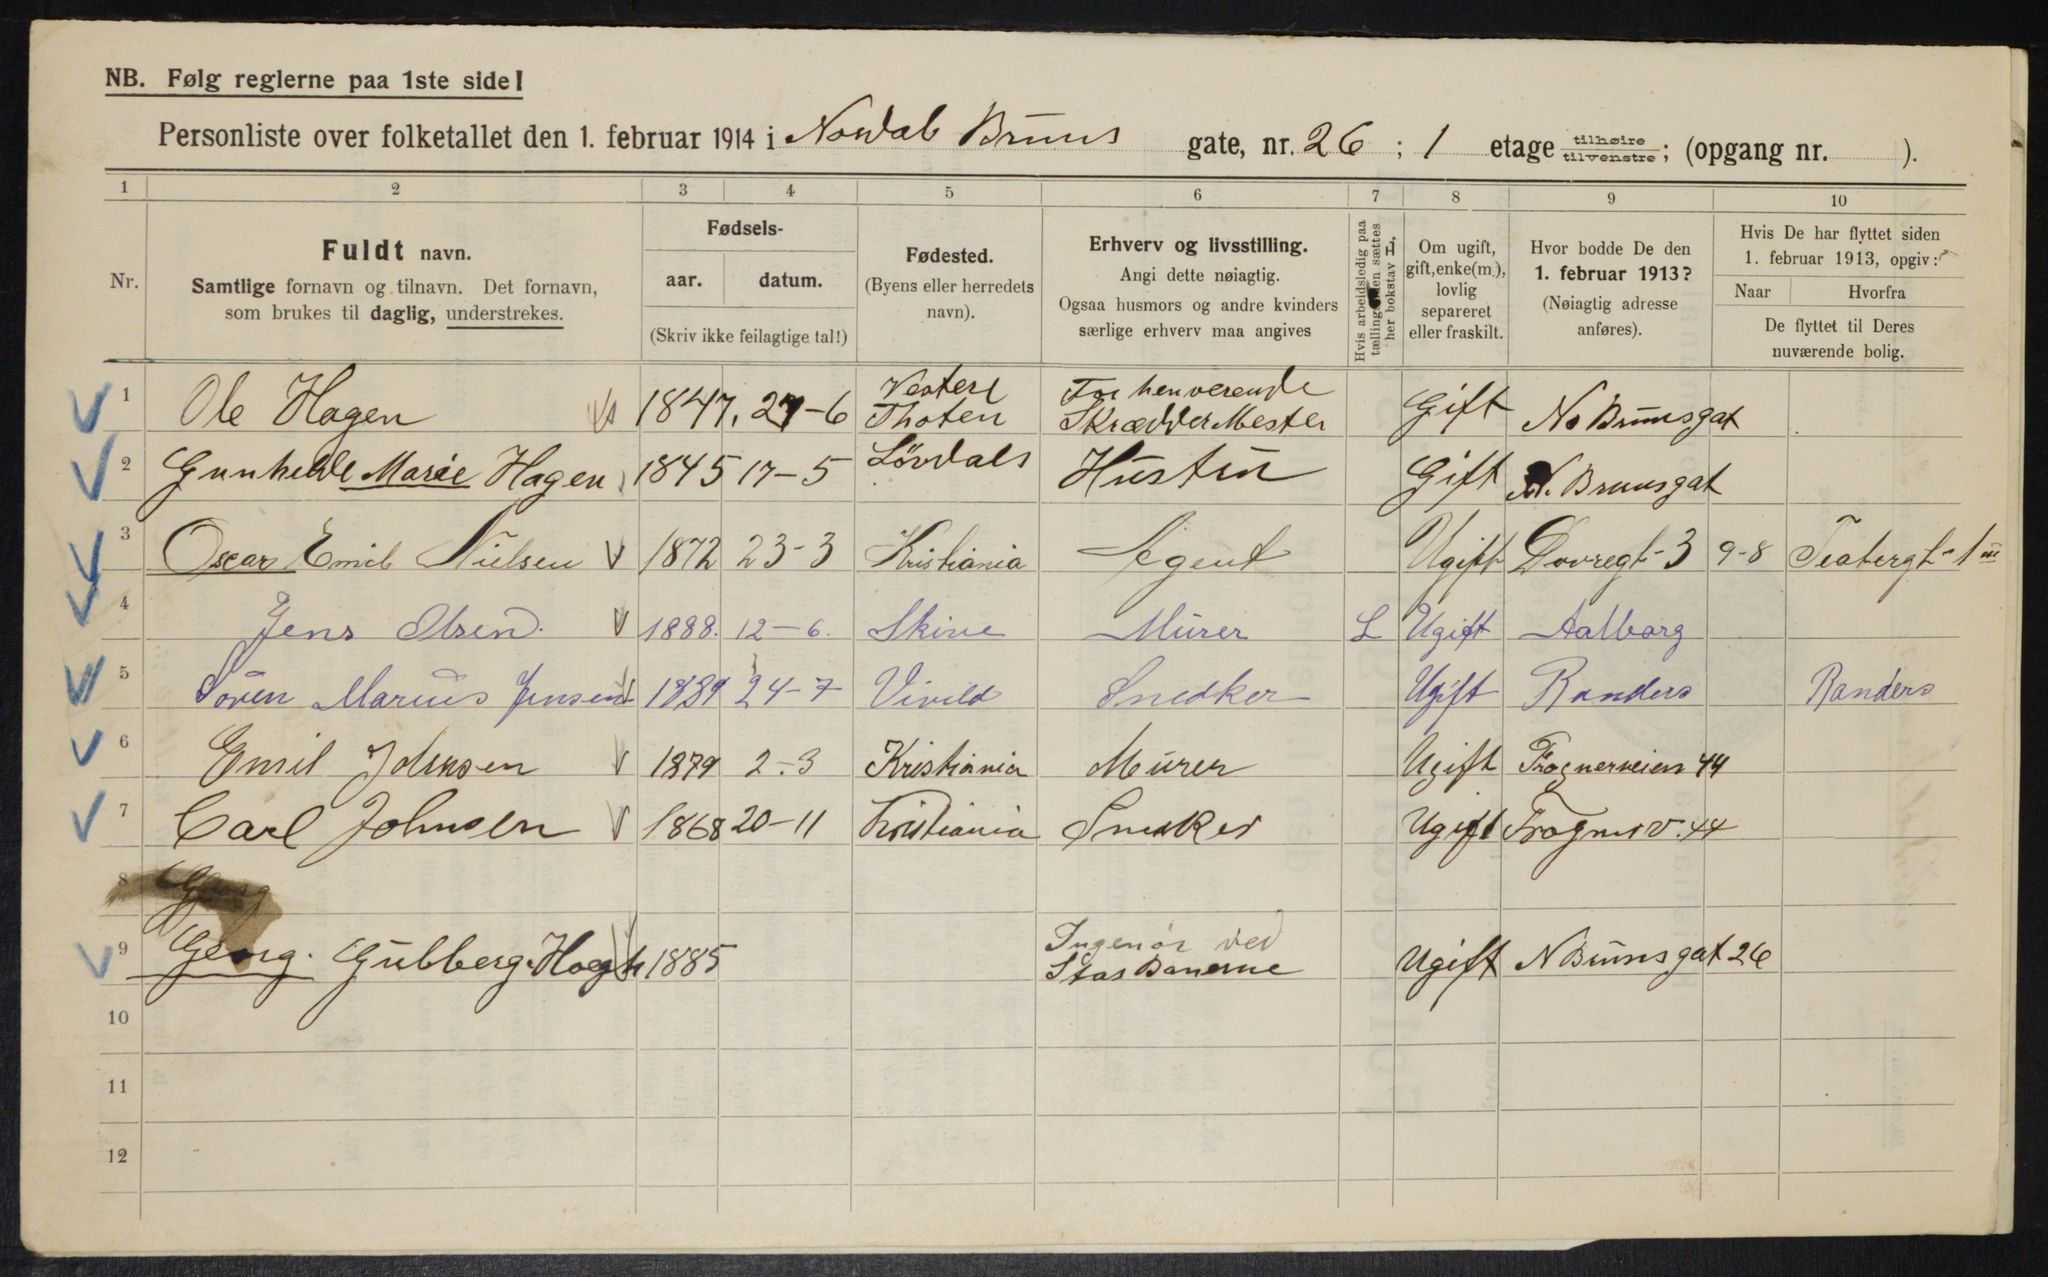 NB. Følg reglerne paa 1ste side!
Personliste over folketallet den 1. februar 1914 i Nordal Bruns gate, nr. 26 ; 1 etage tilhøire tilvenstre; (opgang nr. ).
1 2 3 4 5 6 7 8 9 10
Nr.
Fuldt navn.
Samtlige fornavn og tilnavn. Det fornavn,
som brukes til daglig, understrekes.
Fødsels-
aar. datum.
(Skriv ikke feilagtige tal!)
Fødested.
(Byens eller herredets
navn).
Erhverv og livsstilling.
Angi dette nøiagtig.
Ogsaa husmors og andre kvinders
særlige erhverv maa angives
Hvis arbeidsledig paa
tællingstiden sættes
her bokstav L,
Om ugift,
gift, enke(m.),
lovlig
separeret
eller fraskilt.
Hvor bodde De den
1. februar 1913?
(Nøiagtig adresse
anføres).
Hvis De har flyttet siden
1. februar 1913, opgiv:
Naar Hvorfra
De flyttet til Deres
nuværende bolig.
1 Ole Hagen 1847. 27-6 Vestere Thoten Forhenverende SkrædderMester Gift No Brunsgat
2 Gunhilde Marie Hagen 1845 17-5 Lövdals Hustru Gift N. Brunsgat
3 Oscar Emil Nielsen 1872 23-3 Kristiania Agent Ugift Dovregt-3 9-8 Teatergt-1 III
4 Jens Olsen. 1888. 12-6. Skive Murer L Ugift Aalborg
5 Sören Marius Jensen 1889 24-7 Vivild Snedker Ugift Randers Randers
6 Emil Johnsen 1879 2-3 Kristiania Murer Ugift Frognerveien 44
7 Carl Johnsen 1868 20-11 Kristiania Snedker Ugift Frognerv. 44
8 Georg
9 Georg. Gulberg. Hoegh 1885 Ingeniør ved Stas Banerne Ugift N Brunsgat 26
10
11
12